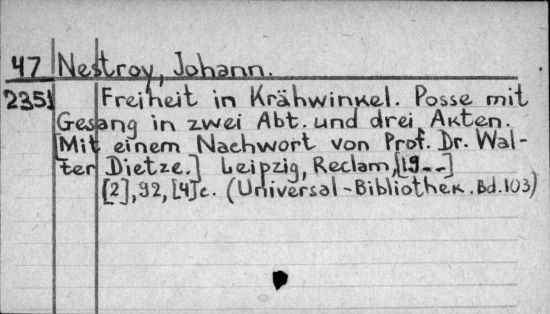 47 Nestroy, Johann.
2351 Freiheit in Krähwinkel. Posse mit
Gesang in zwei Abt. und drei Akten.
[Mit einem Nachwort von Prof. Dr. Wal-
ter Dietze.] Leipzig, Reclam, [19--]
[2], 92, [4] c. (Universal-Bibliothek. Bd. 103)